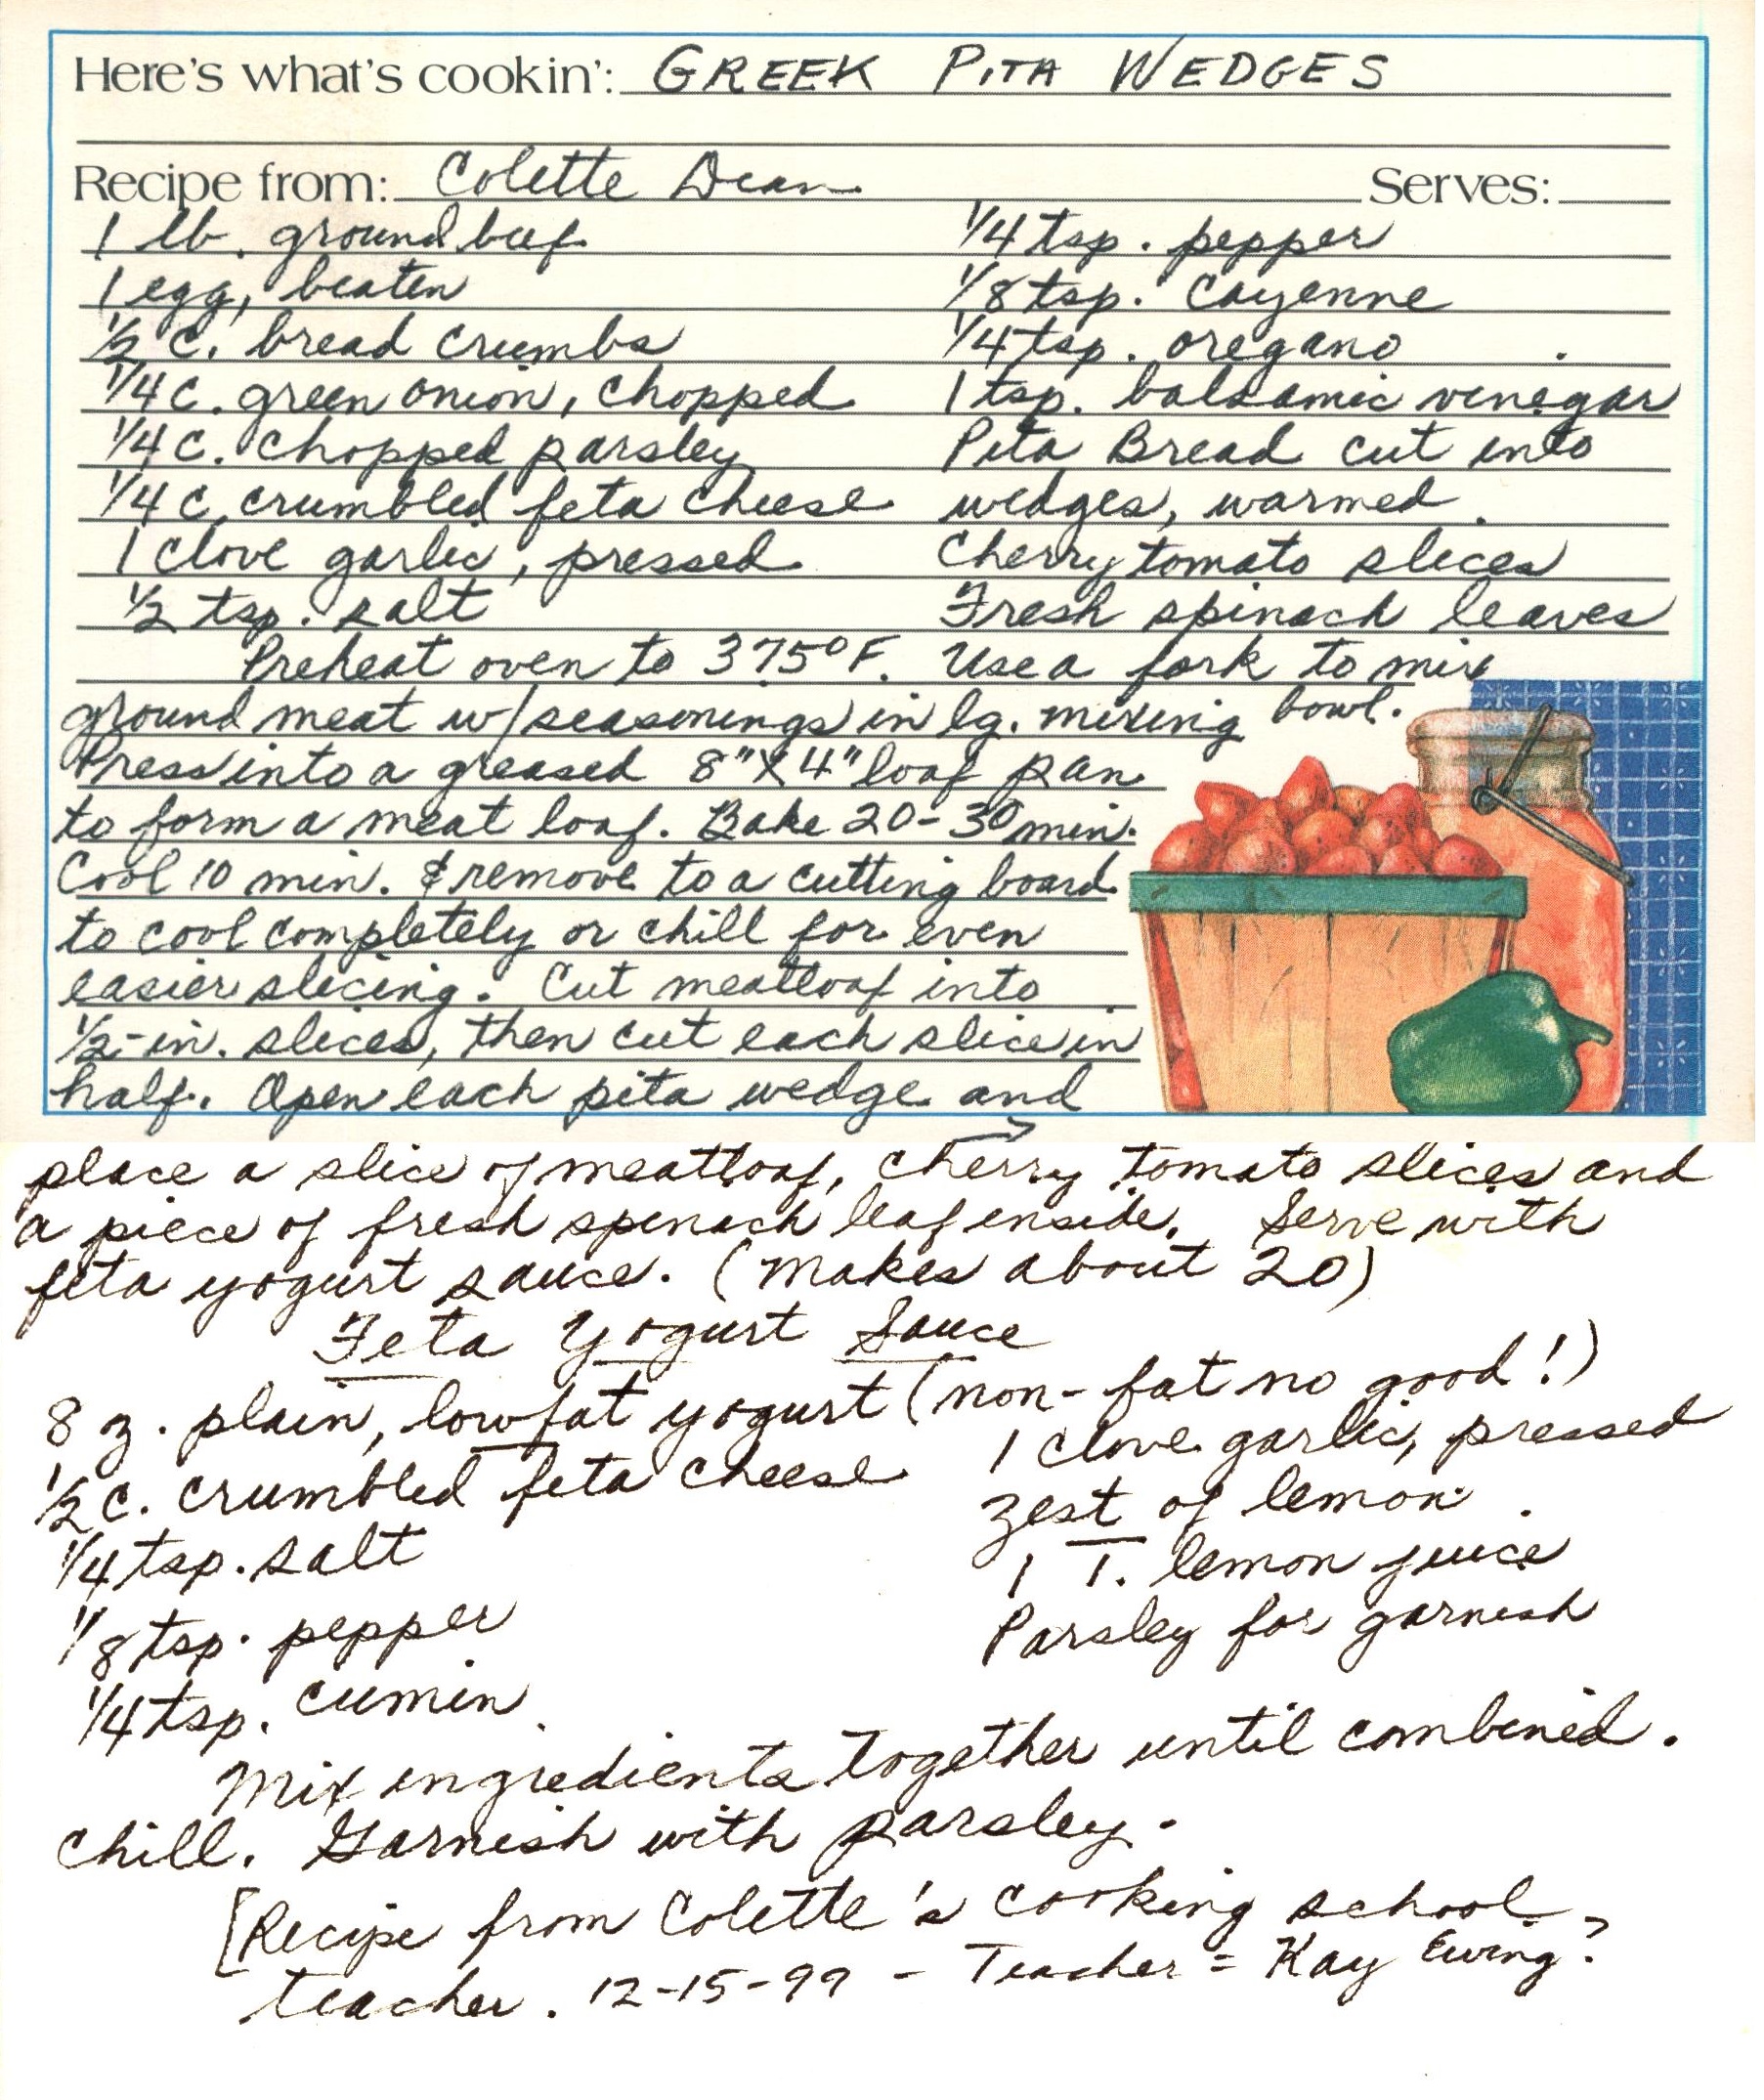 Here's what's cookin': GREEK PITA WEDGES
Recipe from: Colette Dean Serves:
1 lb. ground beef
1 egg, beaten
1/2 c. bread crumbs
1/4 c. green onion, chopped
1/4 c. chopped parsley
1/4 c. crumbled feta cheese
1 clove garlic, pressed
1/2 tsp. salt
1/4 tsp. pepper
1/8 tsp. cayenne
1/4 tsp. oregano
1 tsp. balsamic vinegar
Pita Bread cut into
wedges, warmed
Cherry tomato slices
Fresh spinach leaves
Preheat oven to 375° F. Use a fork to mix
ground meat w/seasonings in lg. mixing bowl.
Press into a greased 8"X4" loaf pan
to form a meat loaf. Bake 20-30 min.
Cool 10 min. & remove to a cutting board
to cool completely or chill for even
easier slicing. Cut meatloaf into
1/2-in. slices, then cut each slice in
half. Open each pita wedge and →
place a slice of meatloaf, cherry tomato slices and
a piece of fresh spinach leaf inside. Serve with
feta yogurt sauce. (Makes about 20)
Feta Yogurt Sauce
8 oz. plain, lowfat yogurt (non-fat no good!)
1/2 c. crumbled feta cheese
1/4 tsp. salt
1/8 tsp. pepper
1/4 tsp. cumin
1 clove garlic, pressed
zest of lemon
1 T. lemon juice
Parsley for garnish
Mix ingredients together until combined.
Chill. Garnish with parsley.
[Recipe from Colette's cooking school
teacher. 12-15-99 - Teacher = Kay Ewing?